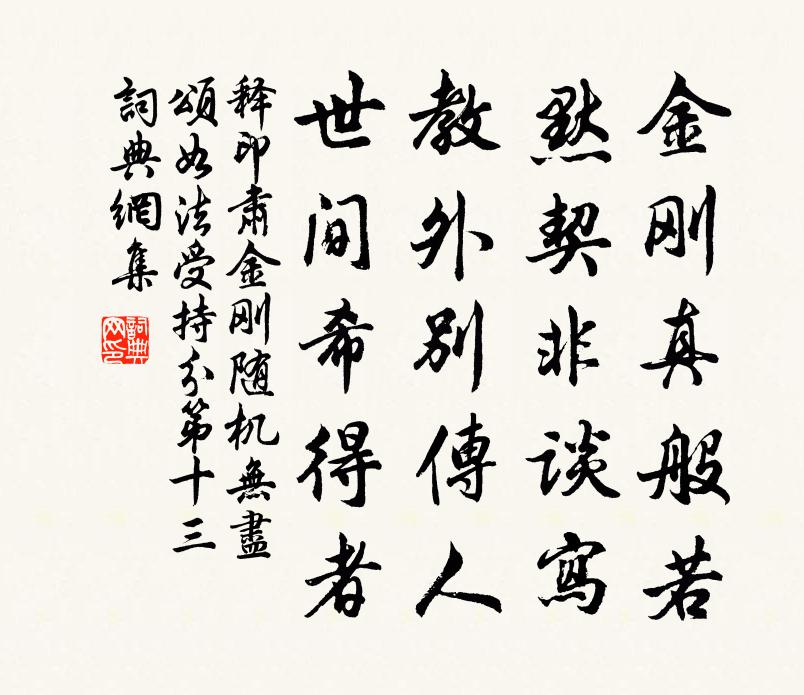 金刚真般若
默契非谈寫
教外别傳人
世间希得者
释印肅金刚随机無盡
頌如法受持分第十三
詞典網集
詞典网印